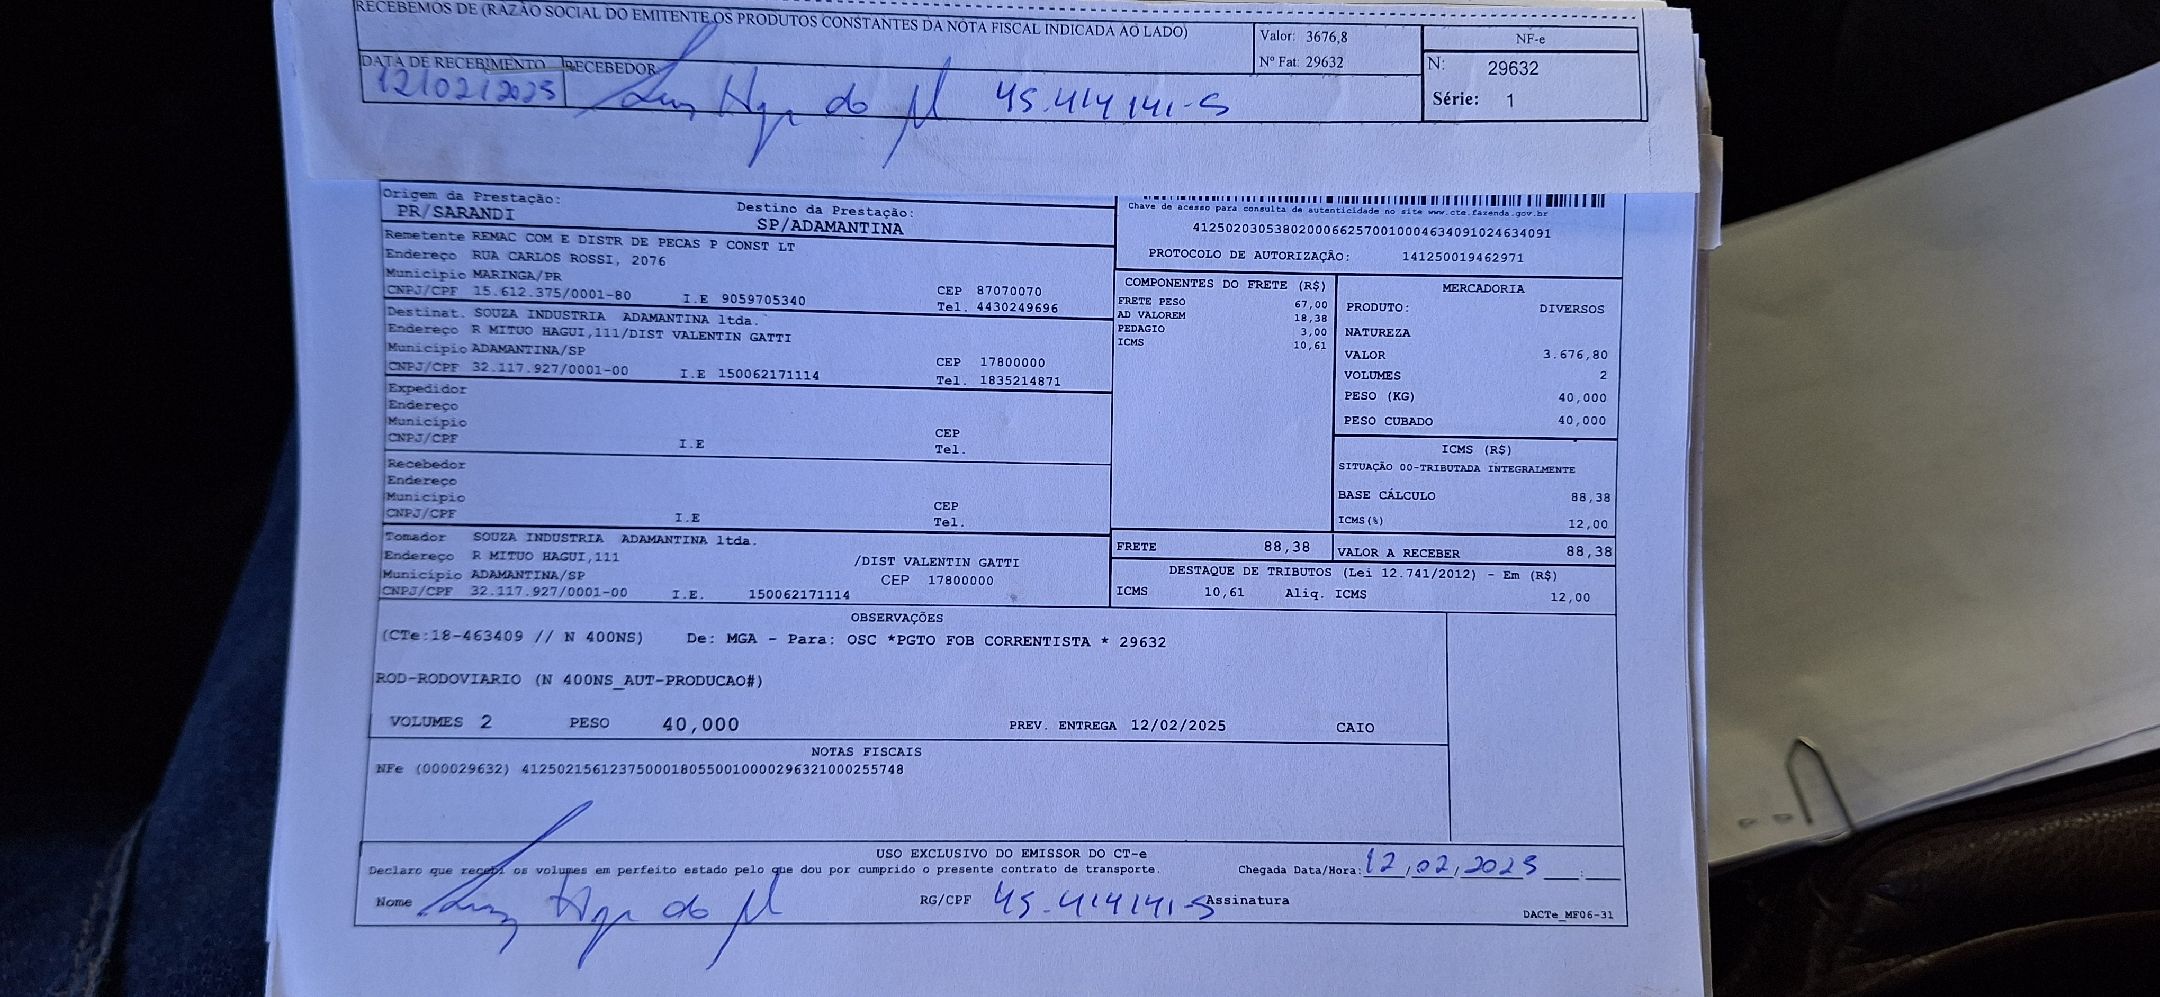 RECEBEMOS DE (RAZÃO SOCIAL DO EMITENTE OS PRODUTOS CONSTANTES DA NOTA FISCAL INDICADA AO LADO)
Valor: 3676,8
Nº Fat: 29632
NF-e
N: 29632
Série: 1
DATA DE RECEBIMENTO RECEBEDOR
12/02/2025 45.414141-5
Origem da Prestação:
PR/SARANDI
Destino da Prestação:
SP/ADAMANTINA
Chave de acesso para consulta de autenticidade no site www.cte.fazenda.gov.br
41250203053802000662570010004634091024634091
PROTOCOLO DE AUTORIZAÇÃO: 141250019462971
Remetente REMAC COM E DISTR DE PECAS P CONST LT
Endereço RUA CARLOS ROSSI, 2076
Município MARINGA/PR CEP 87070070
CNPJ/CPF 15.612.375/0001-80 I.E 9059705340 Tel. 4430249696
Destinat. SOUZA INDUSTRIA ADAMANTINA ltda.
Endereço R MITUO HAGUI,111/DIST VALENTIN GATTI
Município ADAMANTINA/SP CEP 17800000
CNPJ/CPF 32.117.927/0001-00 I.E 150062171114 Tel. 1835214871
Expedidor
Endereço
Município CEP
CNPJ/CPF I.E Tel.
Recebedor
Endereço
Município CEP
CNPJ/CPF I.E Tel.
Tomador SOUZA INDUSTRIA ADAMANTINA ltda.
Endereço R MITUO HAGUI,111 /DIST VALENTIN GATTI
Município ADAMANTINA/SP CEP 17800000
CNPJ/CPF 32.117.927/0001-00 I.E. 150062171114
COMPONENTES DO FRETE (R$)
FRETE PESO 67,00
AD VALOREM 18,38
PEDAGIO 3,00
ICMS 10,61
MERCADORIA
PRODUTO: DIVERSOS
NATUREZA
VALOR 3.676,80
VOLUMES 2
PESO (KG) 40,000
PESO CUBADO 40,000
ICMS (R$)
SITUAÇÃO 00-TRIBUTADA INTEGRALMENTE
BASE CÁLCULO 88,38
ICMS(%) 12,00
FRETE 88,38 VALOR A RECEBER 88,38
DESTAQUE DE TRIBUTOS (Lei 12.741/2012) - Em (R$)
ICMS 10,61 Aliq. ICMS 12,00
OBSERVAÇÕES
(CTe:18-463409 // N 400NS) De: MGA - Para: OSC *PGTO FOB CORRENTISTA * 29632
ROD-RODOVIARIO (N 400NS_AUT-PRODUCAO#)
VOLUMES 2 PESO 40,000 PREV. ENTREGA 12/02/2025 CAIO
NOTAS FISCAIS
NFe (000029632) 41250215612375000180550010000296321000255748
USO EXCLUSIVO DO EMISSOR DO CT-e
Declaro que recebi os volumes em perfeito estado pelo que dou por cumprido o presente contrato de transporte. Chegada Data/Hora: 12/02/2025 __:__
Nome RG/CPF 45.414141-5 Assinatura
DACTe_MF06-31